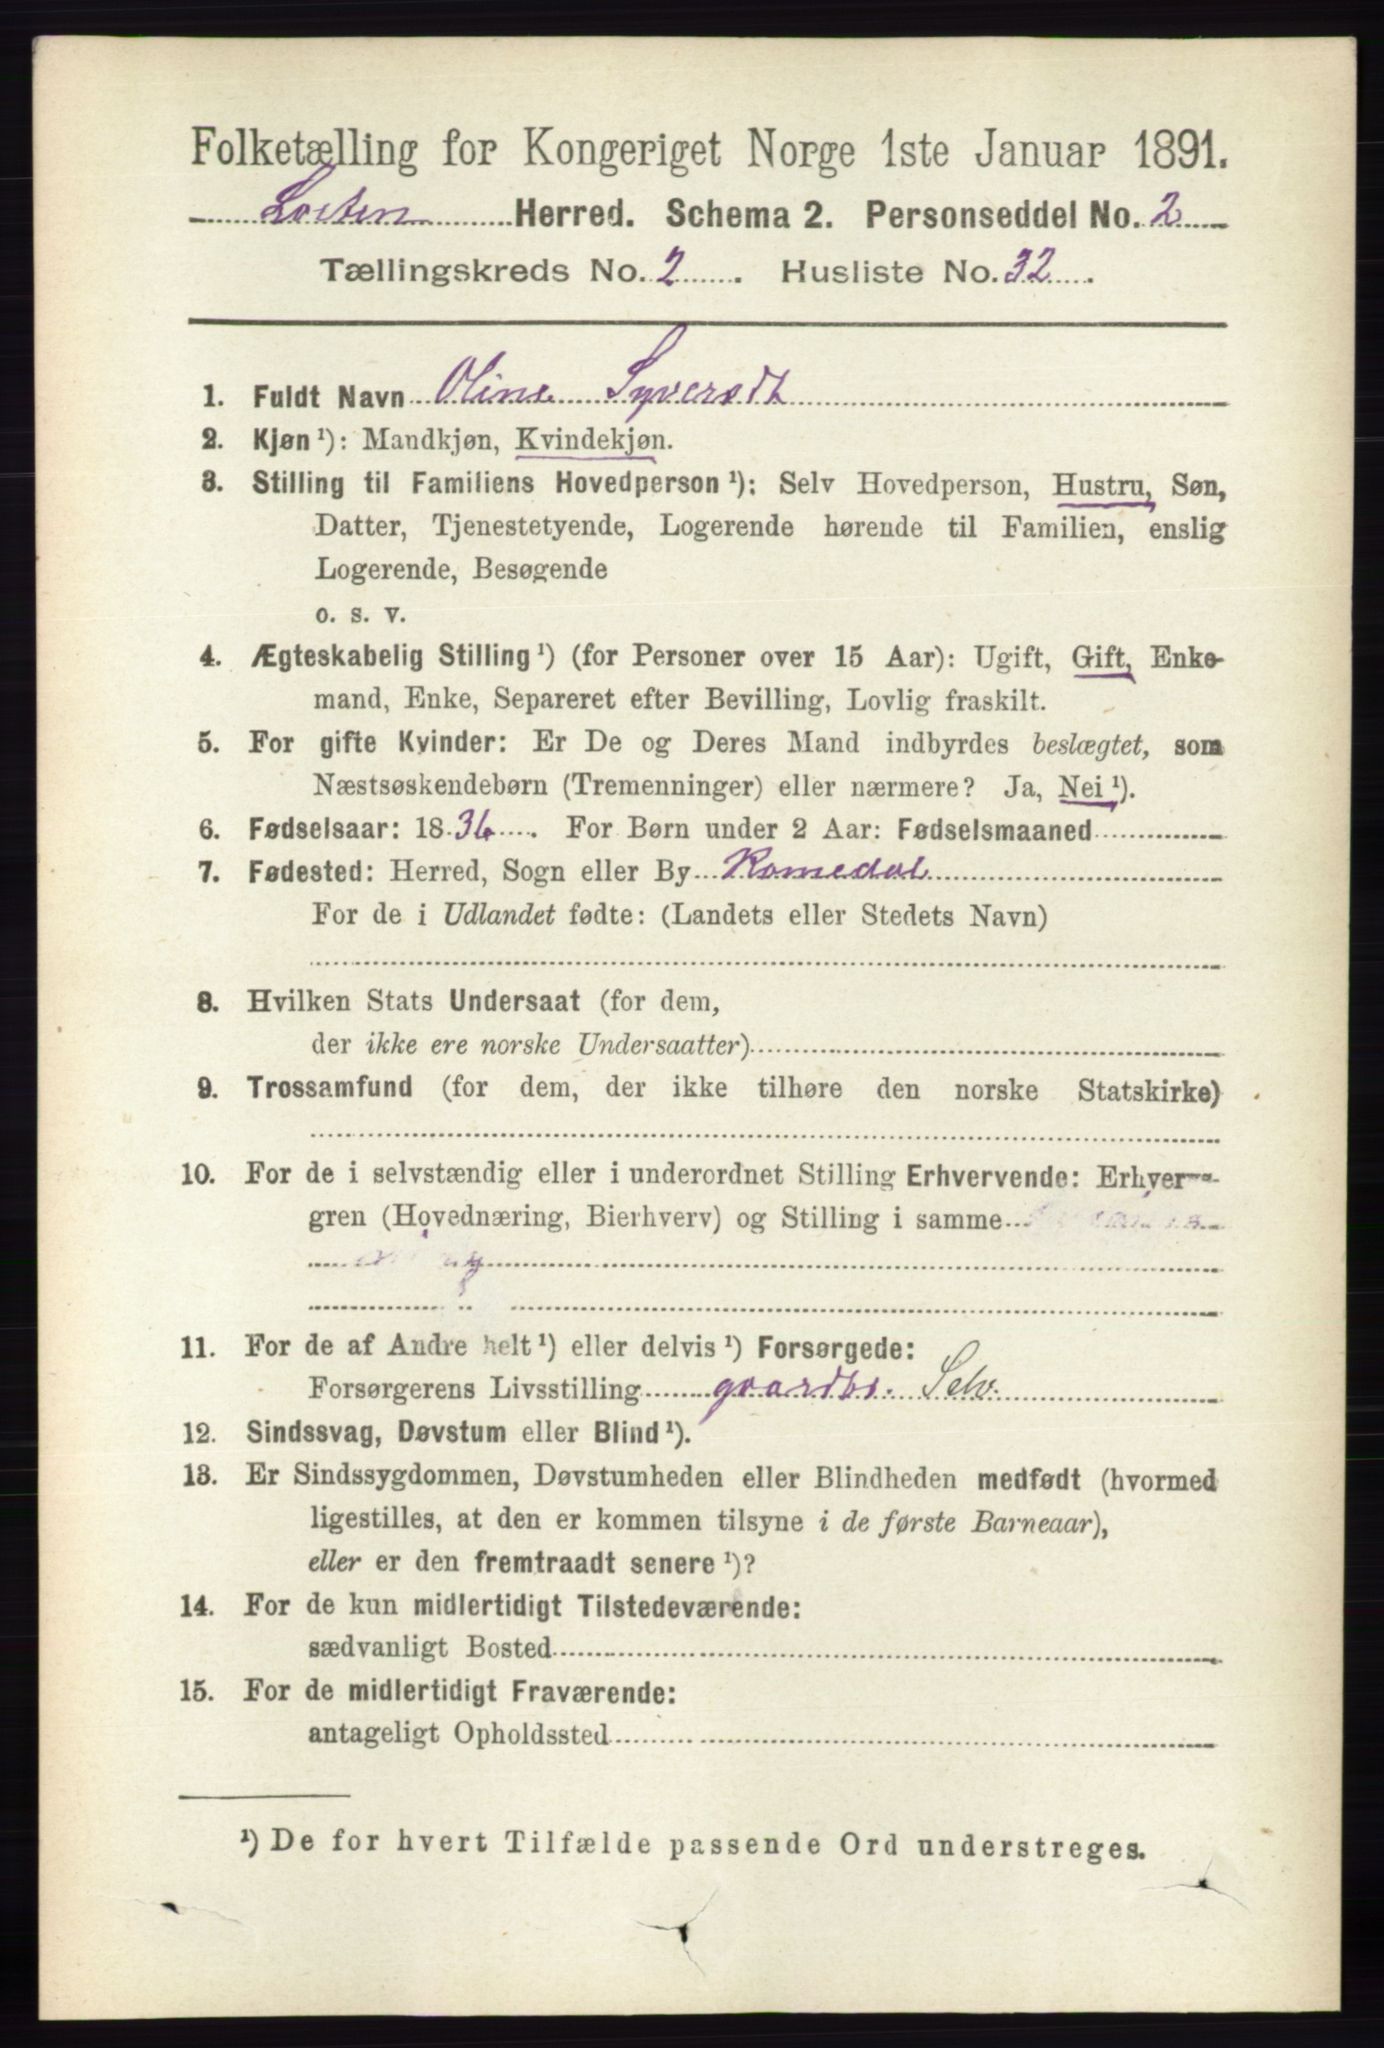 Folketælling for Kongeriget Norge 1ste Januar 1891.
Løiten Herred. Schema 2. Personseddel No. 2
Tællingskreds No. 2. Husliste No. 32.
1. Fuldt Navn Oline Syversdt
2. Kjøn ¹): Mandkjøn, Kvindekjøn.
3. Stilling til Familiens Hovedperson ¹): Selv Hovedperson, Hustru, Søn,
Datter, Tjenestetyende, Logerende hørende til Familien, enslig
Logerende, Besøgende
o. s. v.
4. Ægteskabelig Stilling ¹) (for Personer over 15 Aar): Ugift, Gift, Enke-
mand, Enke, Separeret efter Bevilling, Lovlig fraskilt.
5. For gifte Kvinder: Er De og Deres Mand indbyrdes beslægtet, som
Næstsøskendebørn (Tremenninger) eller nærmere? Ja, Nei ¹).
6. Fødselsaar: 1836. For Børn under 2 Aar: Fødselsmaaned
7. Fødested: Herred, Sogn eller By Romedal
For de i Udlandet fødte: (Landets eller Stedets Navn)
8. Hvilken Stats Undersaat (for dem,
der ikke ere norske Undersaatter)
9. Trossamfund (for dem, der ikke tilhøre den norske Statskirke)
10. For de i selvstændig eller i underordnet Stilling Erhvervende: Erhvervs-
gren (Hovednæring, Bierhverv) og Stilling i samme
11. For de af Andre helt ¹) eller delvis ¹) Forsørgede:
Forsørgerens Livsstilling gaardbr. Selv.
12. Sindssvag, Døvstum eller Blind ¹).
13. Er Sindssygdommen, Døvstumheden eller Blindheden medfødt (hvormed
ligestilles, at den er kommen tilsyne i de første Barneaar),
eller er den fremtraadt senere ¹)?
14. For de kun midlertidigt Tilstedeværende:
sædvanligt Bosted
15. For de midlertidigt Fraværende:
antageligt Opholdssted
¹) De for hvert Tilfælde passende Ord understreges.